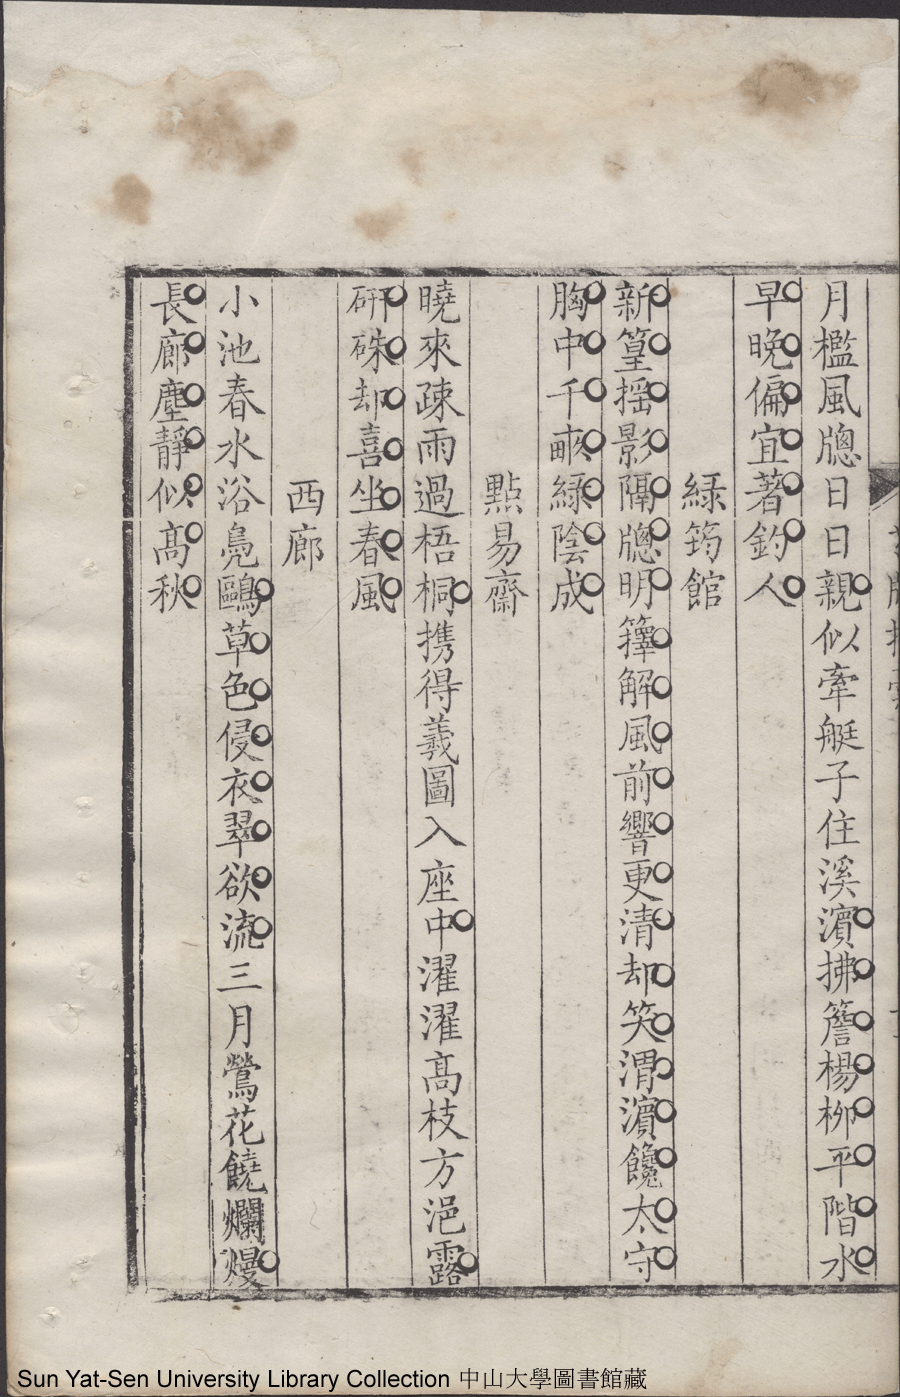 月檻風牕日日親似牽艇子住溪濵拂簷楊栁平階水
早晚偏宜著釣人
綠筠館
新篁揺影隔牕明籜解風前響更清却笑渭濵饞太守
胸中千畞綠陰成
點易齋
曉來疎雨過梧桐携得羲圖入座中濯濯髙枝方浥露
硏硃却喜坐春風
西廊
小池春水浴鳧鷗草色侵衣翠欲流三月鶯花饒爛熳
長廊塵靜似髙秋
Sun Yat-Sen University Library Collection 中山大學圖書館藏